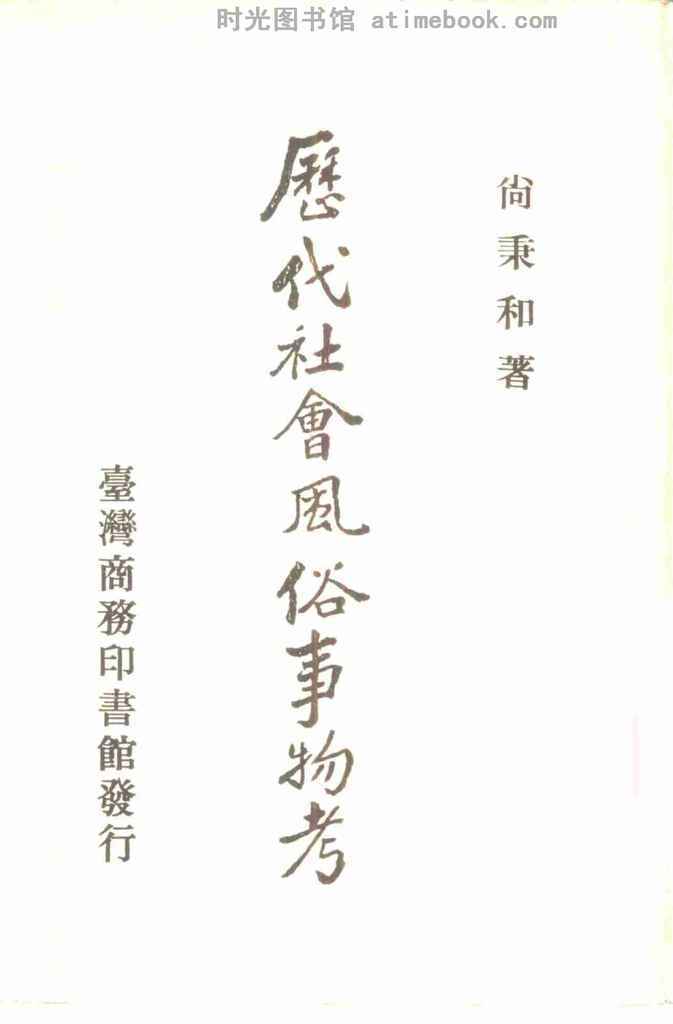 时光图书馆 atimebook.com
尙秉和著
歷代社會風俗事物考
臺灣商務印書館發行